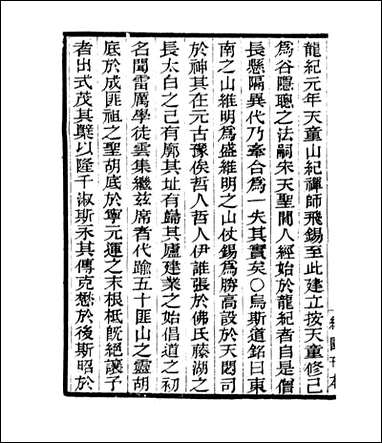 龍紀元年天童山紀禪師飛錫至此建立按天童修己
爲谷隱聰之法嗣宋天聖間人經始於龍紀者自是僧
長懸隔異代乃牽合爲一失其實矣〇烏斯道銘曰東
南之山維明爲盛維明之山仗錫爲勝高設於天閟司
於神其在元古豫俟哲人哲人伊誰張於佛氏藤湖之
長太白之己有廓其址有歸其廬建業之始倡道之初
名聞雷厲學徒雲集繼兹席者代踰五十匪山之靈胡
底於成匪祖之聖胡底於寧元運之末根柢旣絕讓子
者出式茂其櫱以隆千淑斯永其傳克懋於後斯昭於